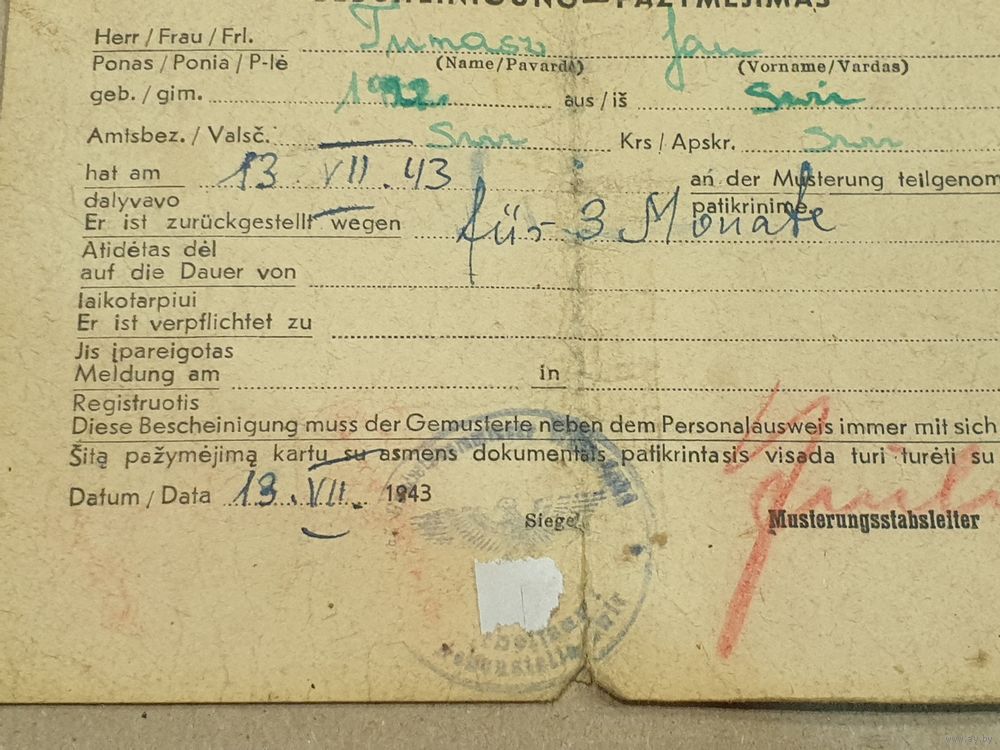 BESCHEINIGUNG—PAŽYMĖJIMAS
Herr / Frau / Frl. Tumasz Jan
Ponas / Ponia / P-lė (Name/Pavardė) (Vorname/Vardas)
geb. / gim. 1922. aus / iš Swir
Amtsbez. / Valsč. Swir Krs / Apskr. Swir
hat am 13.VII.43 an der Musterung teilgenom
dalyvavo patikrinime
Er ist zurückgestellt wegen für 3 Monate
Atidėtas dėl
auf die Dauer von
laikotarpiui
Er ist verpflichtet zu
Jis įpareigotas
Meldung am in
Registruotis
Diese Bescheinigung muss der Gemusterte neben dem Personalausweis immer mit sich
Šitą pažymėjimą kartu su asmens dokumentais patikrintasis visada turi turėti su
Datum / Data 13.VII. 1943
Siegel
Musterungsstabsleiter
Nebenstelle Swir
www.ay.by